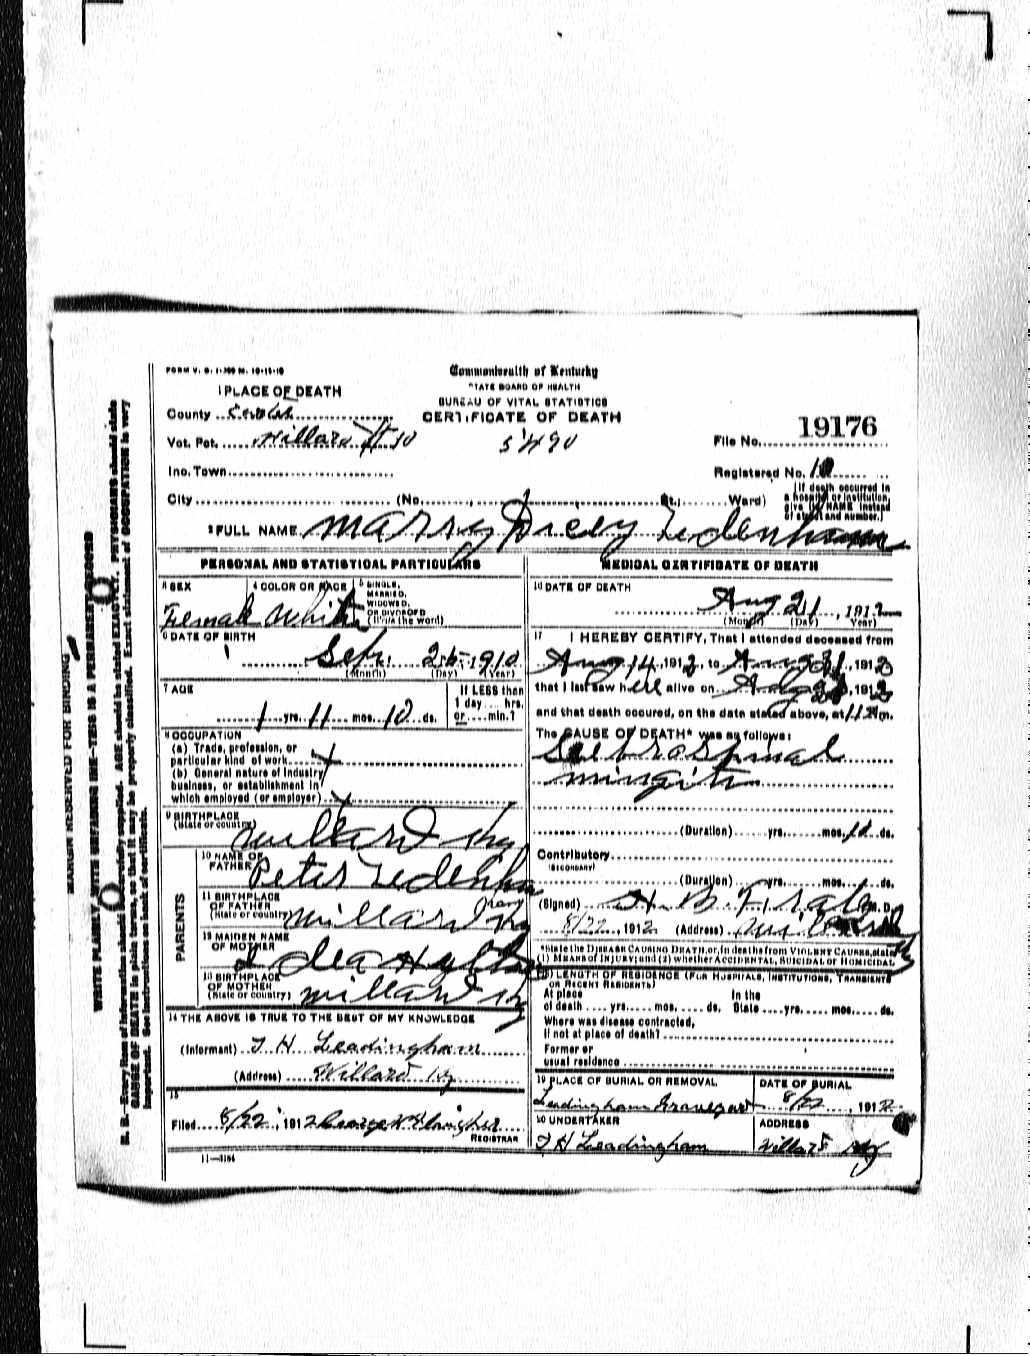 FORM V. S. 1-300 M. 10-15-10
Commonwealth of Kentucky
STATE BOARD OF HEALTH
BUREAU OF VITAL STATISTICS
CERTIFICATE OF DEATH
1 PLACE OF DEATH
County
Vot. Pct. Willard # 10
5490
File No. 19176
Inc. Town
Registered No. 10
City (No. St.; Ward)
(If death occurred in a hospital or institution, give its NAME instead of street and number.)
2 FULL NAME Marry Dicey Ledenham
PERSONAL AND STATISTICAL PARTICULARS
3 SEX Female
4 COLOR OR RACE White
5 SINGLE, MARRIED, WIDOWED, OR DIVORCED (Write the word)
6 DATE OF BIRTH
Sept. 25, 1910
(Month) (Day) (Year)
7 AGE
1 yrs. 11 mos. 10 ds.
If LESS than 1 day hrs. or min.?
8 OCCUPATION
(a) Trade, profession, or particular kind of work x
(b) General nature of industry business, or establishment in which employed (or employer) x
9 BIRTHPLACE (State or country) Willard Ky
PARENTS
10 NAME OF FATHER Peter Ledenham
11 BIRTHPLACE OF FATHER (State or country) Willard Ky
12 MAIDEN NAME OF MOTHER
13 BIRTHPLACE OF MOTHER (State or country) Willard Ky
14 THE ABOVE IS TRUE TO THE BEST OF MY KNOWLEDGE
(Informant) T H Leadingham
(Address) Willard Ky
15
Filed 8/22, 1912 George
REGISTRAR
11—3184
MEDICAL CERTIFICATE OF DEATH
16 DATE OF DEATH
Aug 21, 1912
(Month) (Day) (Year)
17 I HEREBY CERTIFY, That I attended deceased from
Aug 14, 1912, to Aug 21, 1912
that I last saw her alive on Aug, 1912
and that death occured, on the date stated above, at m.
The CAUSE OF DEATH* was as follows:
(Duration) yrs. mos. ds.
Contributory
(SECONDARY)
(Duration) yrs. mos. ds.
(Signed) H. B. M. D.
8/22, 1912 (Address)
*State the DISEASE CAUSING DEATH, or, in deaths from VIOLENT CAUSES, state (1) MEANS OF INJURY; and (2) whether ACCIDENTAL, SUICIDAL or HOMICIDAL
18 LENGTH OF RESIDENCE (FOR HOSPITALS, INSTITUTIONS, TRANSIENTS OR RECENT RESIDENTS)
At place of death yrs. mos. ds. In the State yrs. mos. ds.
Where was disease contracted, if not at place of death?
Former or usual residence
19 PLACE OF BURIAL OR REMOVAL
Leadingham Graveyard
DATE OF BURIAL
8/22, 1912
20 UNDERTAKER
T H Leadingham
ADDRESS
Willard Ky
MARGIN RESERVED FOR BINDING
WRITE PLAINLY, WITH UNFADING INK—THIS IS A PERMANENT RECORD
N. B.—Every item of information should be carefully supplied. AGE should be stated EXACTLY. PHYSICIANS should state
CAUSE OF DEATH in plain terms, so that it may be properly classified. Exact statement of OCCUPATION is very
important. See instructions on back of certificate.